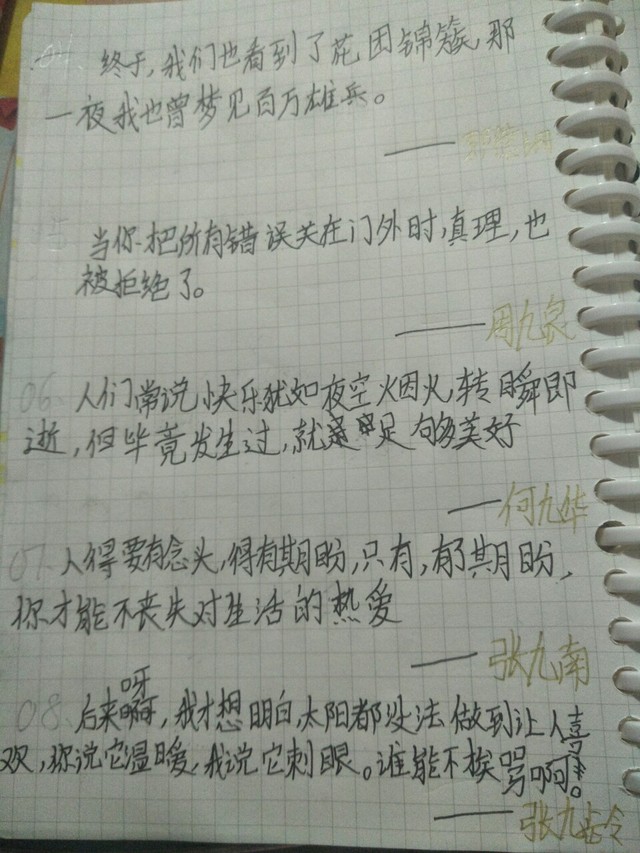 04. 终于,我们也看到了花团锦簇,那
一夜我也曾梦见百万雄兵。
——
当你把所有错误关在门外时,真理,也
被拒绝了。
——周九泉
06. 人们常说快乐犹如夜空烟火,转瞬即
逝,但毕竟发生过,就是足够美好
—何九华
07. 人得要有念头,得有期盼,只有,有了期盼,
你才能不丧失对生活的热爱
——张九南
08. 后来呀啊,我才想明白,太阳都没法做到让人喜
欢,你说它温暖,我说它刺眼。谁能不挨骂啊。
——张九龄